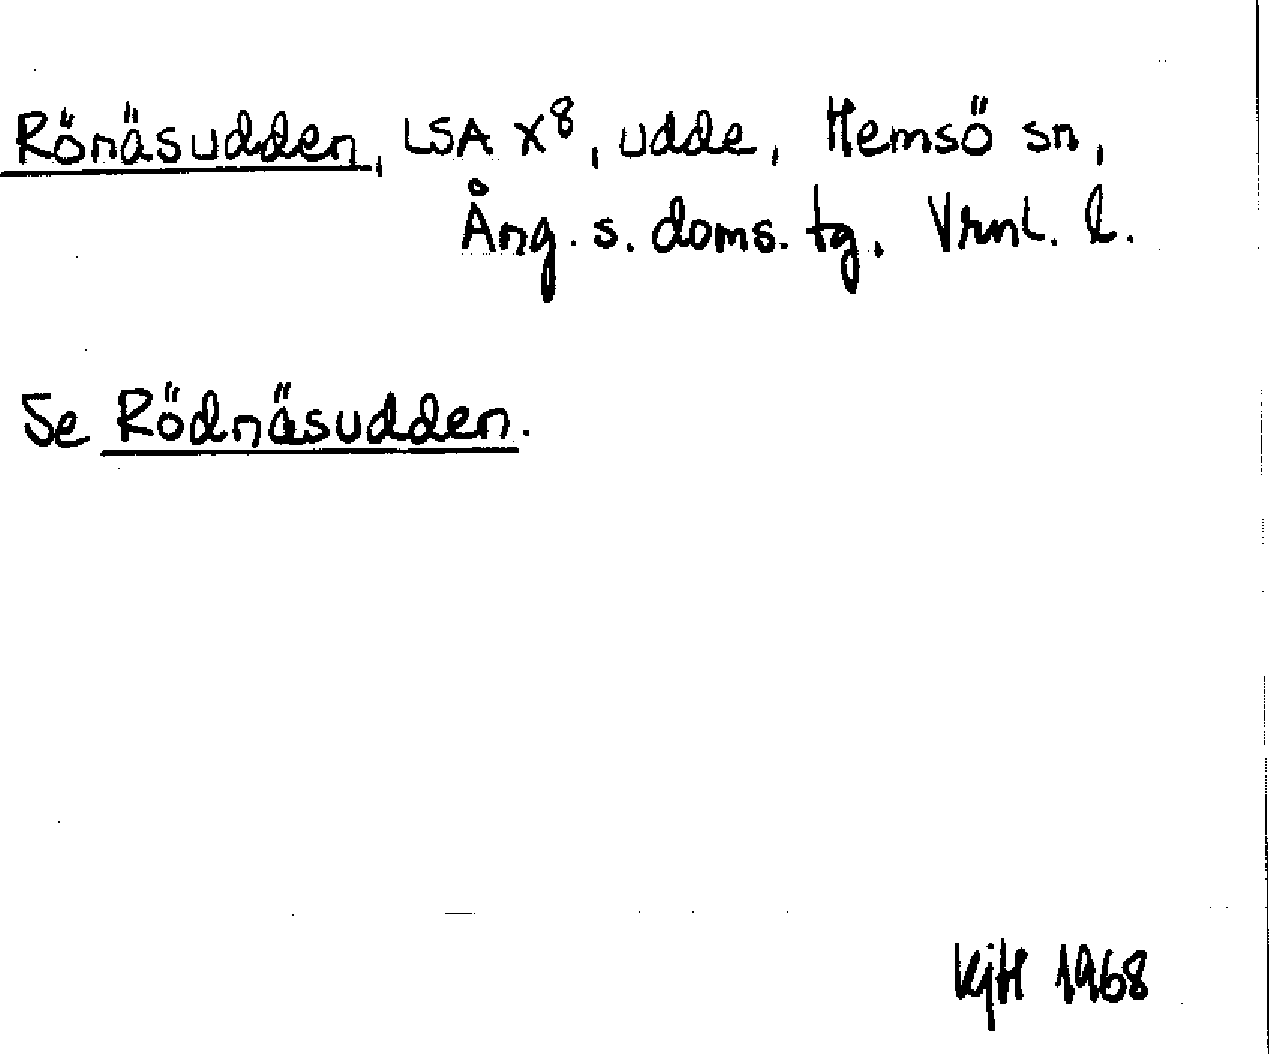 Rönäsudden, LSA X8, udde, Hemsö sn,
Ång. s. doms. tg. Vrnl. l.
Se Rödnäsudden.
KjH 1968